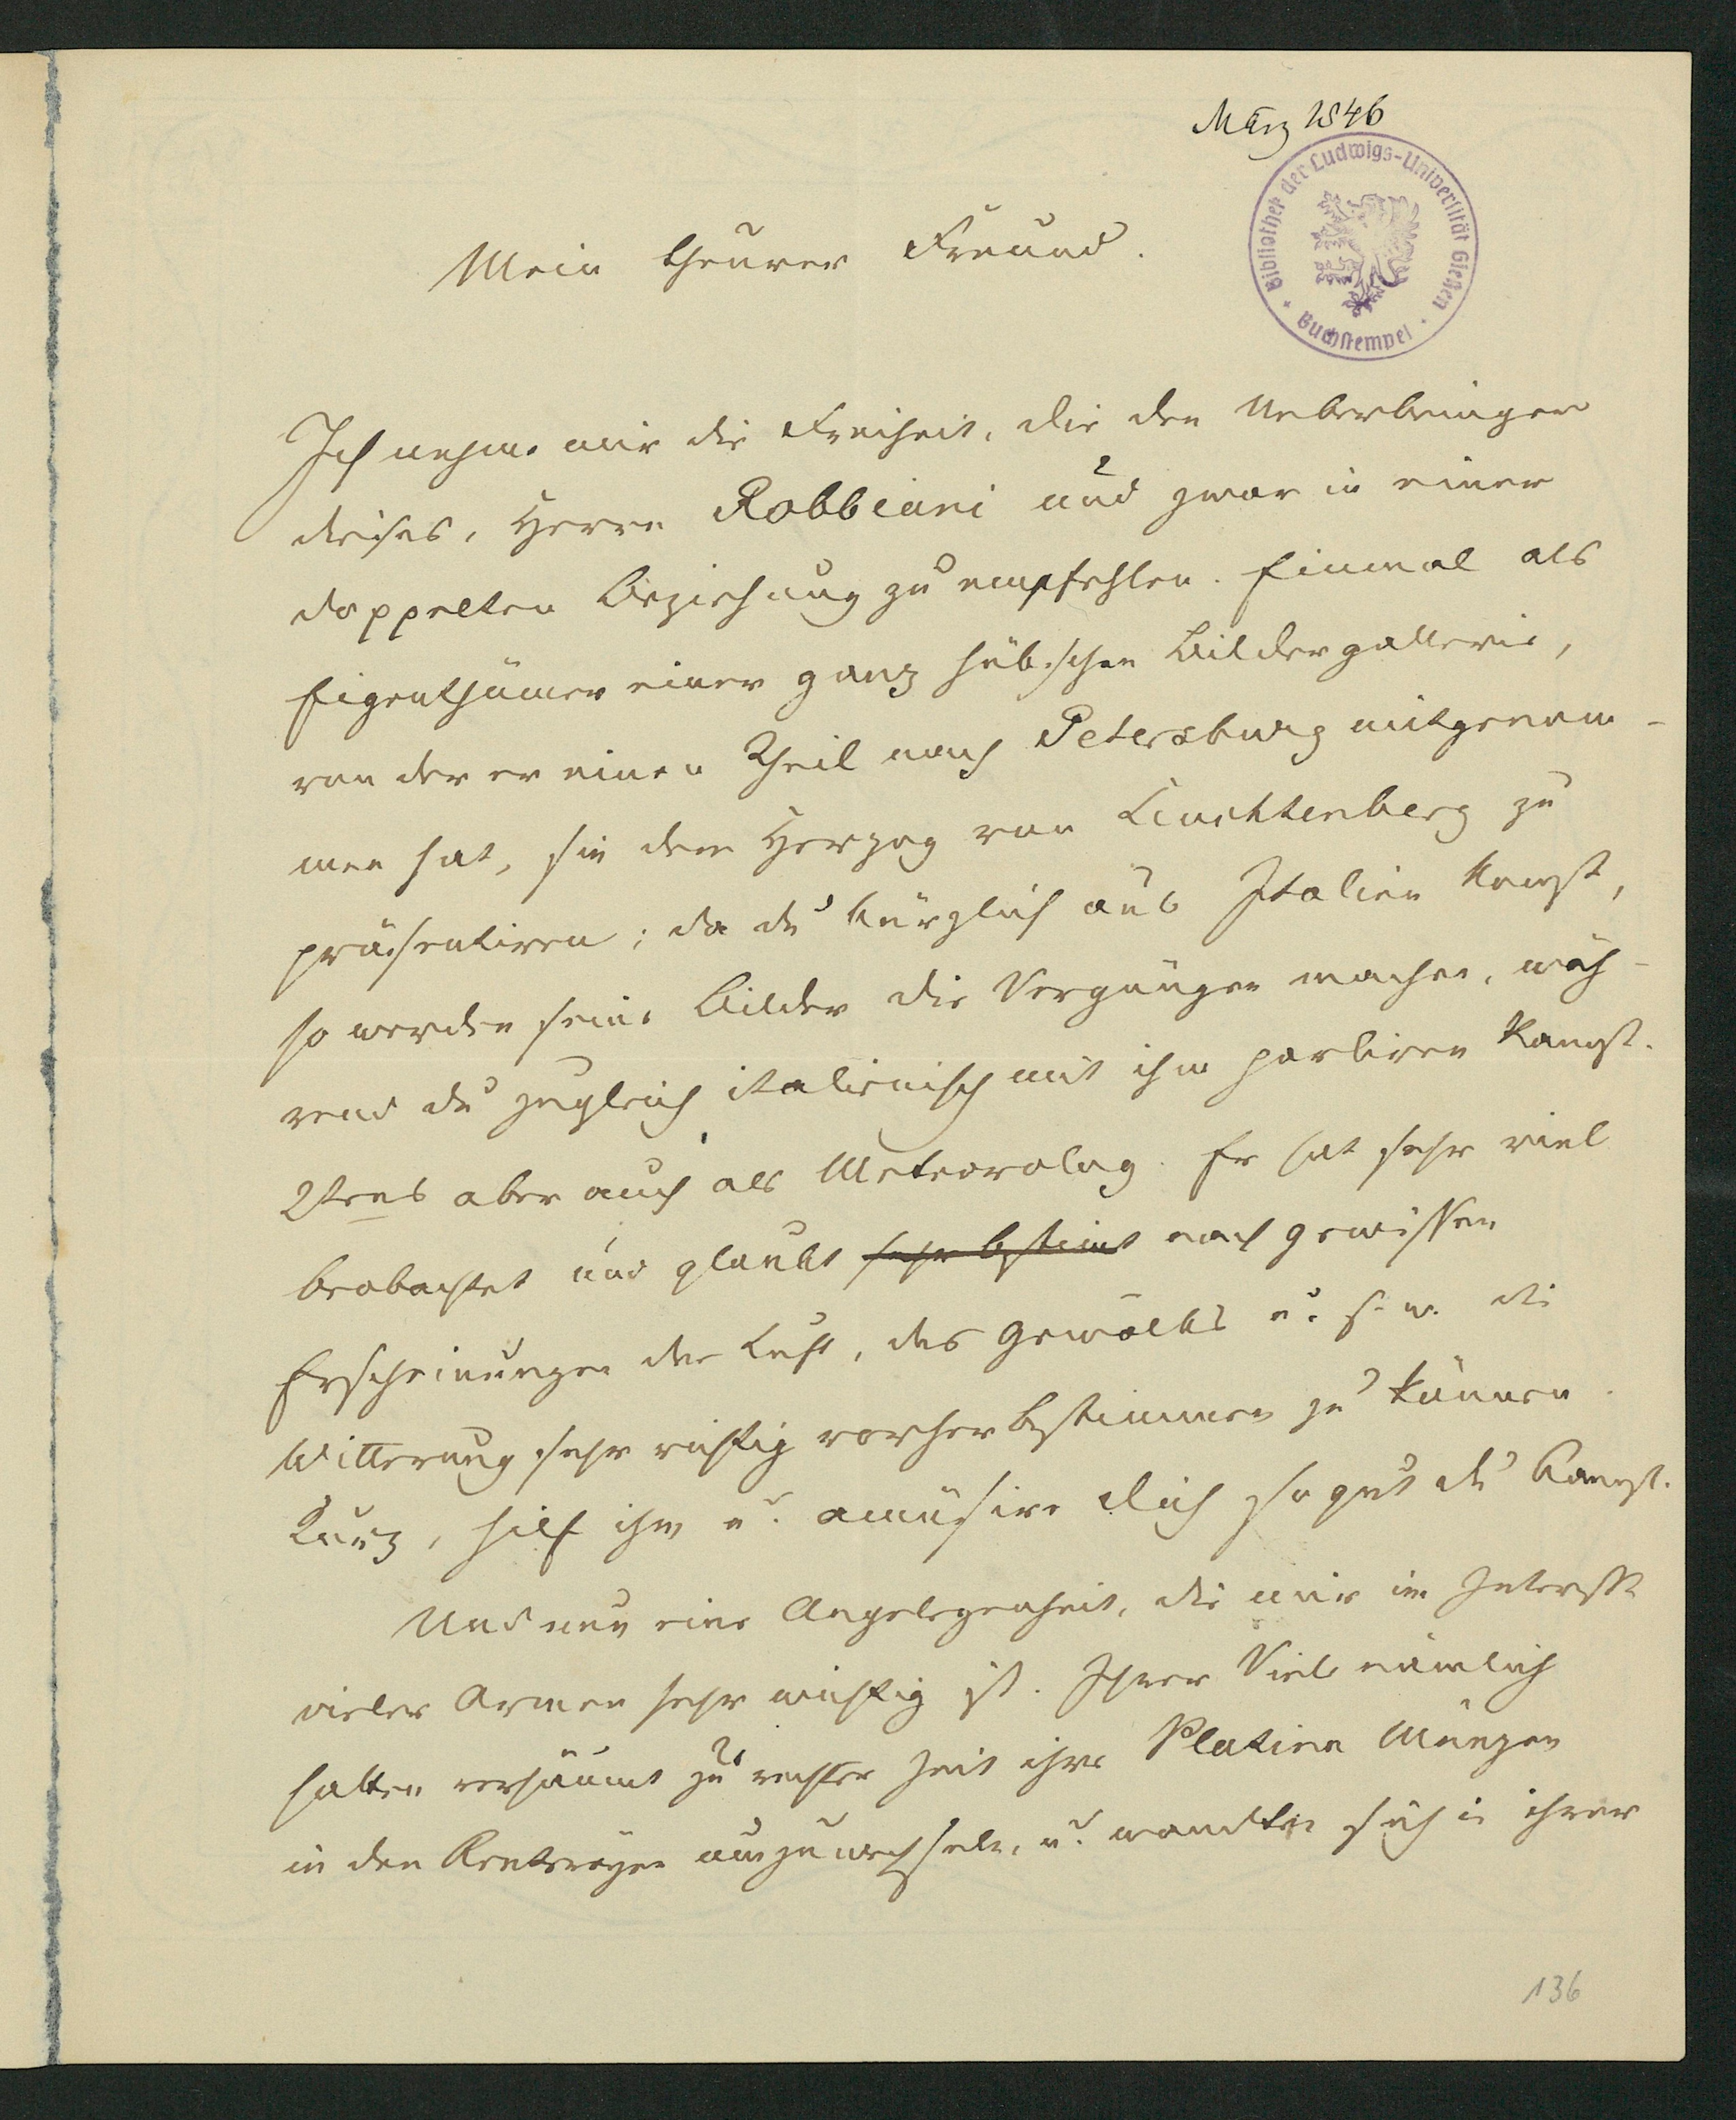 März 1846
Bibliothek der Ludwigs-Universität Gießen
Buchstempel
Mein theurer Freund.
Ich nehme mir die Freiheit, dir den Ueberbringer
dieses, Herrn Robbiani und zwar in einer
doppelten Beziehung zu empfehlen. Einmal als
Eigenthümer einer ganz hübschen Bildergallerie,
von der er einen Theil nach Petersburg mitgenom-
men hat, sie dem Herzog von Leuchtenberg zu
präsentiren; da du kürzlich aus Italien kömst,
so werden seine Bilder dir Vergnügen machen, wäh-
rend du zugleich italienisch mit ihm parliren kanst.
2tens aber auch als Meteorolog. Er hat sehr viel
beobachtet und glaubt sehr bstimt nach gewissen
Erscheinungen der Luft, des Gewölks u. s. w. die
Witterung sehr richtig vorherbstimmen zu können.
Kurz, hilf ihm u. amüsire dich so gut du kanst.
Und nun eine Angelegenheit, die mir im Interesse
vieler Armen sehr wichtig ist. Ihrer Viele nämlich
hatten versäumt zu rechter Zeit ihre Platina Münzen
in den Rentereyen auszuwechseln, u. wandten sich in ihrer
136